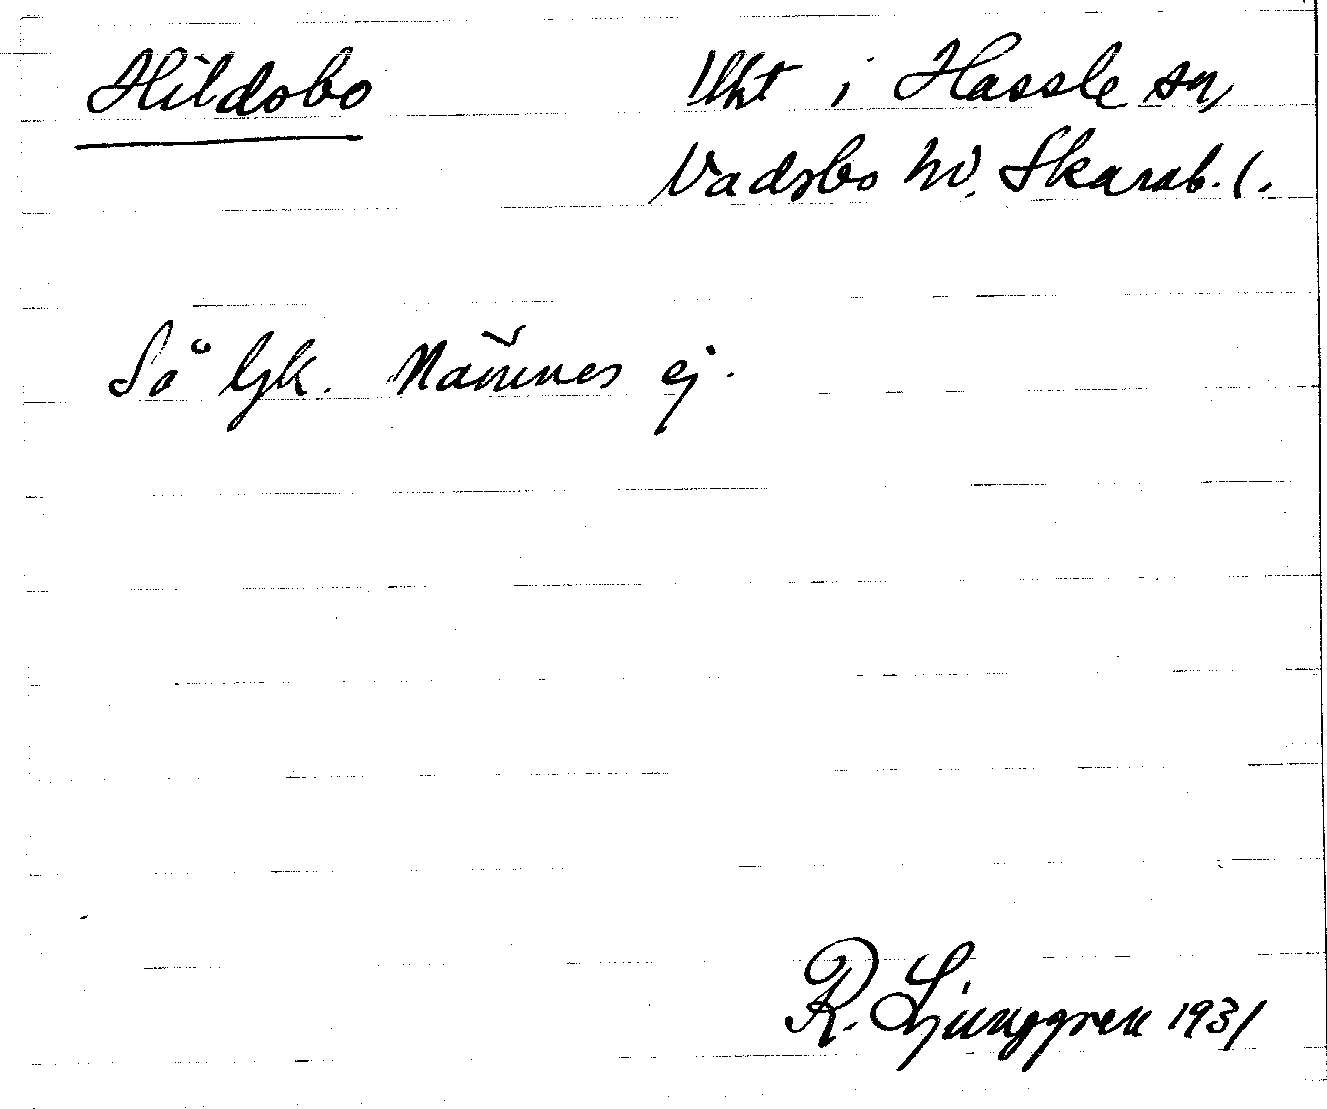 Hildsbo
Lht i Hassle sn
Vadsbo hd. Skarab. l.
Så lgk. Nämnes ej.
R. Ljunggren 1931